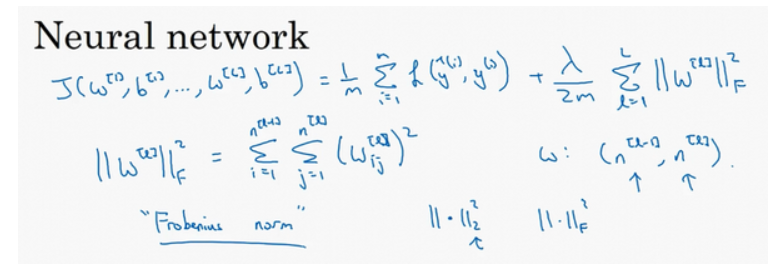 Neural network
J(w^[1], b^[1], ..., w^[L], b^[L]) = 1/m Σ_{i=1}^{m} L(ŷ^(i), y^(i)) + λ/2m Σ_{l=1}^{L} ||w^[l]||_F^2
||w^[l]||_F^2 = Σ_{i=1}^{n^[l-1]} Σ_{j=1}^{n^[l]} (w_ij^[l])^2 w: (n^[l-1], n^[l]).
↑ ↑
"Frobenius norm" ||·||_2^2 ||·||_F^2
↑